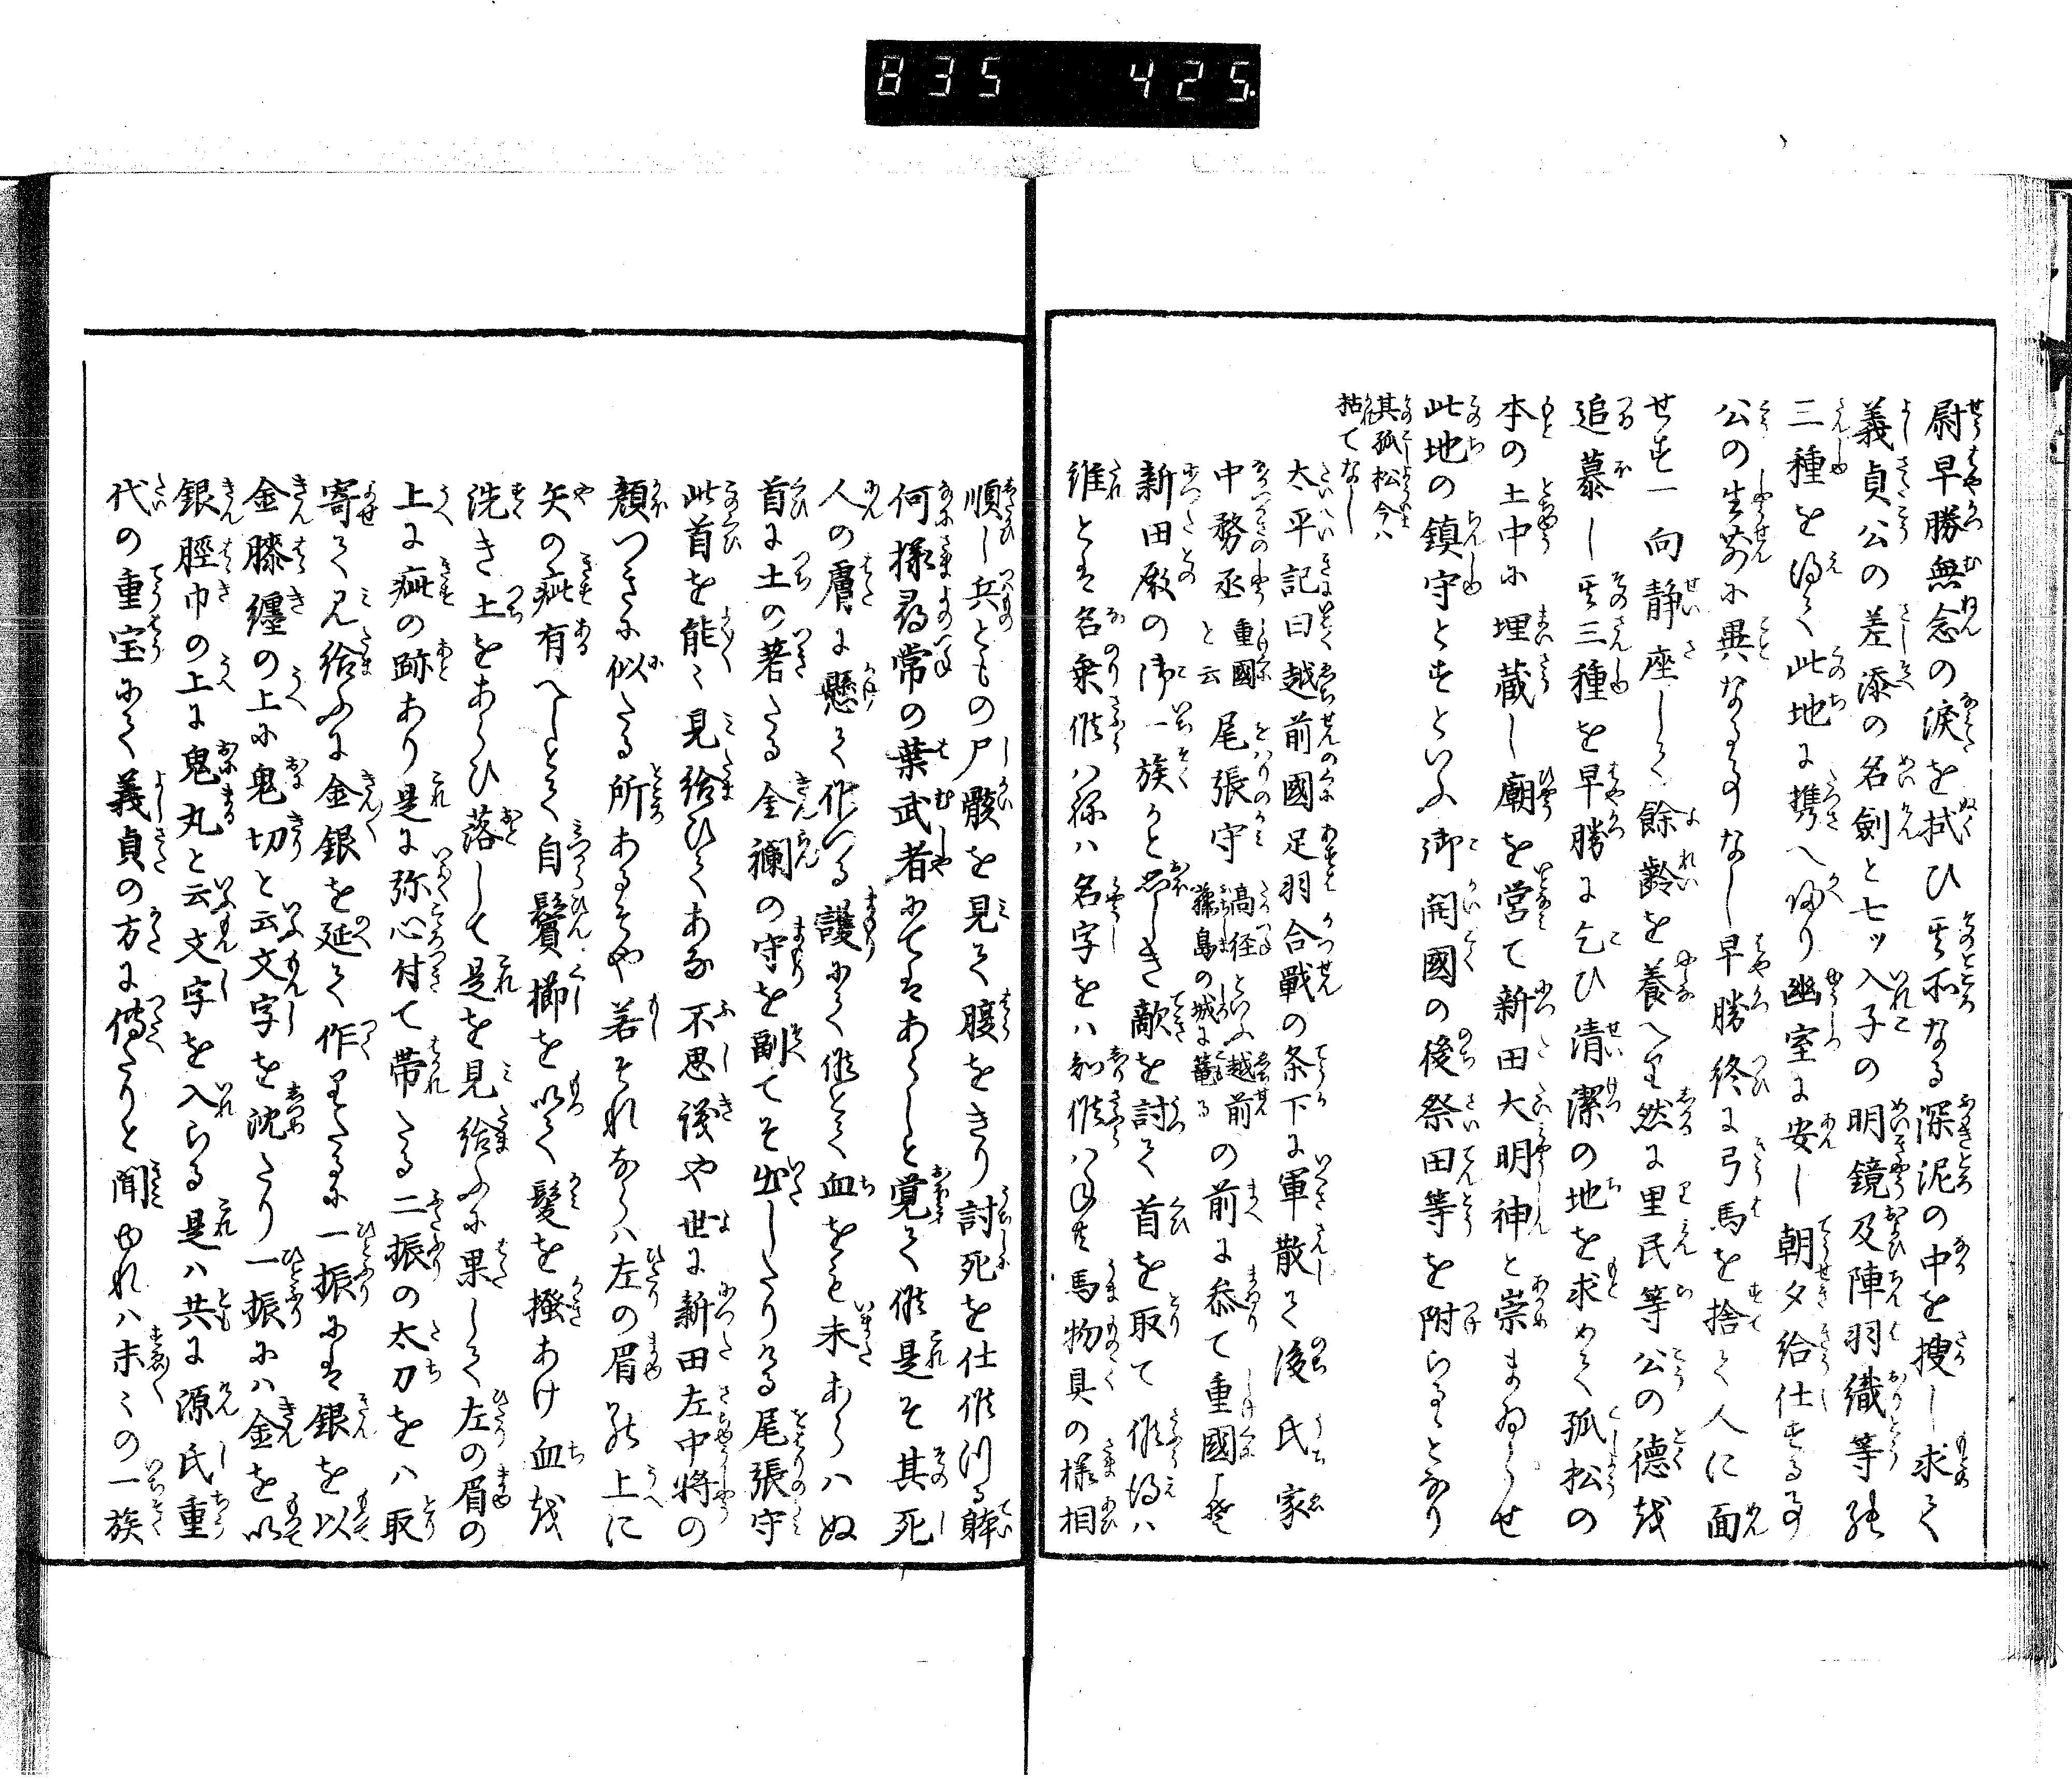 835 425.
尉早勝無念の涙を拭ひ其所なる深泥の中を捜し求て
義貞公の差添の名劍と七ッ入子の明鏡及陣羽織等の
三種を得て此地に携へ帰り幽室に安し朝夕給仕する事
公の生前に異なる事なし早勝終に弓馬を捨て人に面
せす一向静座して餘齢を養へり然に里民等公の徳を
追慕し其三種を早勝に乞ひ清潔の地を求めて孤松の
本の土中に埋蔵し廟を営て新田大明神と崇まゐらせ
此地の鎮守とすといふ御開國の後祭田等を附らるとなり
其孤松今ハ
枯てなし
太平記曰越前國足羽合戰の条下に軍散て後氏家
中務丞重國と云尾張守高経といふ越前藤島の城に篭るの前に参て重國こそ
新田殿の御一族かと思しき敵を討て首を取て候得ハ
誰とは名乗候ハねハ名字をハ知候ハねとも馬物具の様相
順し兵ともの尸骸を見て腹をきり討死を仕候つる躰
何様尋常の葉武者にてはあらしと覚て候是そ其死
人の膚に懸て候つる護にて候とて血をも未あらハぬ
首に土の著たる金襴の守を副てそ出したりける尾張守
此首を能ミ見給ひてあな不思議や世に新田左中將の
顔つきに似たる所あるそや若それならハ左の眉の上に
矢の疵有へしとて自鬢櫛を以て髪を掻あけ血を
洗き土をあらひ落して是を見給ふに果して左の眉の
上に疵の跡あり是に弥心付て帯たる二振の太刀をハ取
寄て見給ふに金銀を延て作りたるに一振にハ銀を以
金膝纏の上に鬼切と云文字を沈たり一振にハ金を以
銀脛巾の上に鬼丸と云文字を入らる是ハ共に源氏重
代の重宝にて義貞の方に傳たりと聞ゆれハ末〻の一族